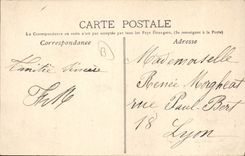 CARTE POSTALE
La Correspondance au recto n'est pas acceptée par tous les Pays Étrangers. (Se renseigner à la Poste)
Correspondance
Adresse
Amitié sincère
Mademoiselle
Renée
rue Paul Bert
18
Lyon